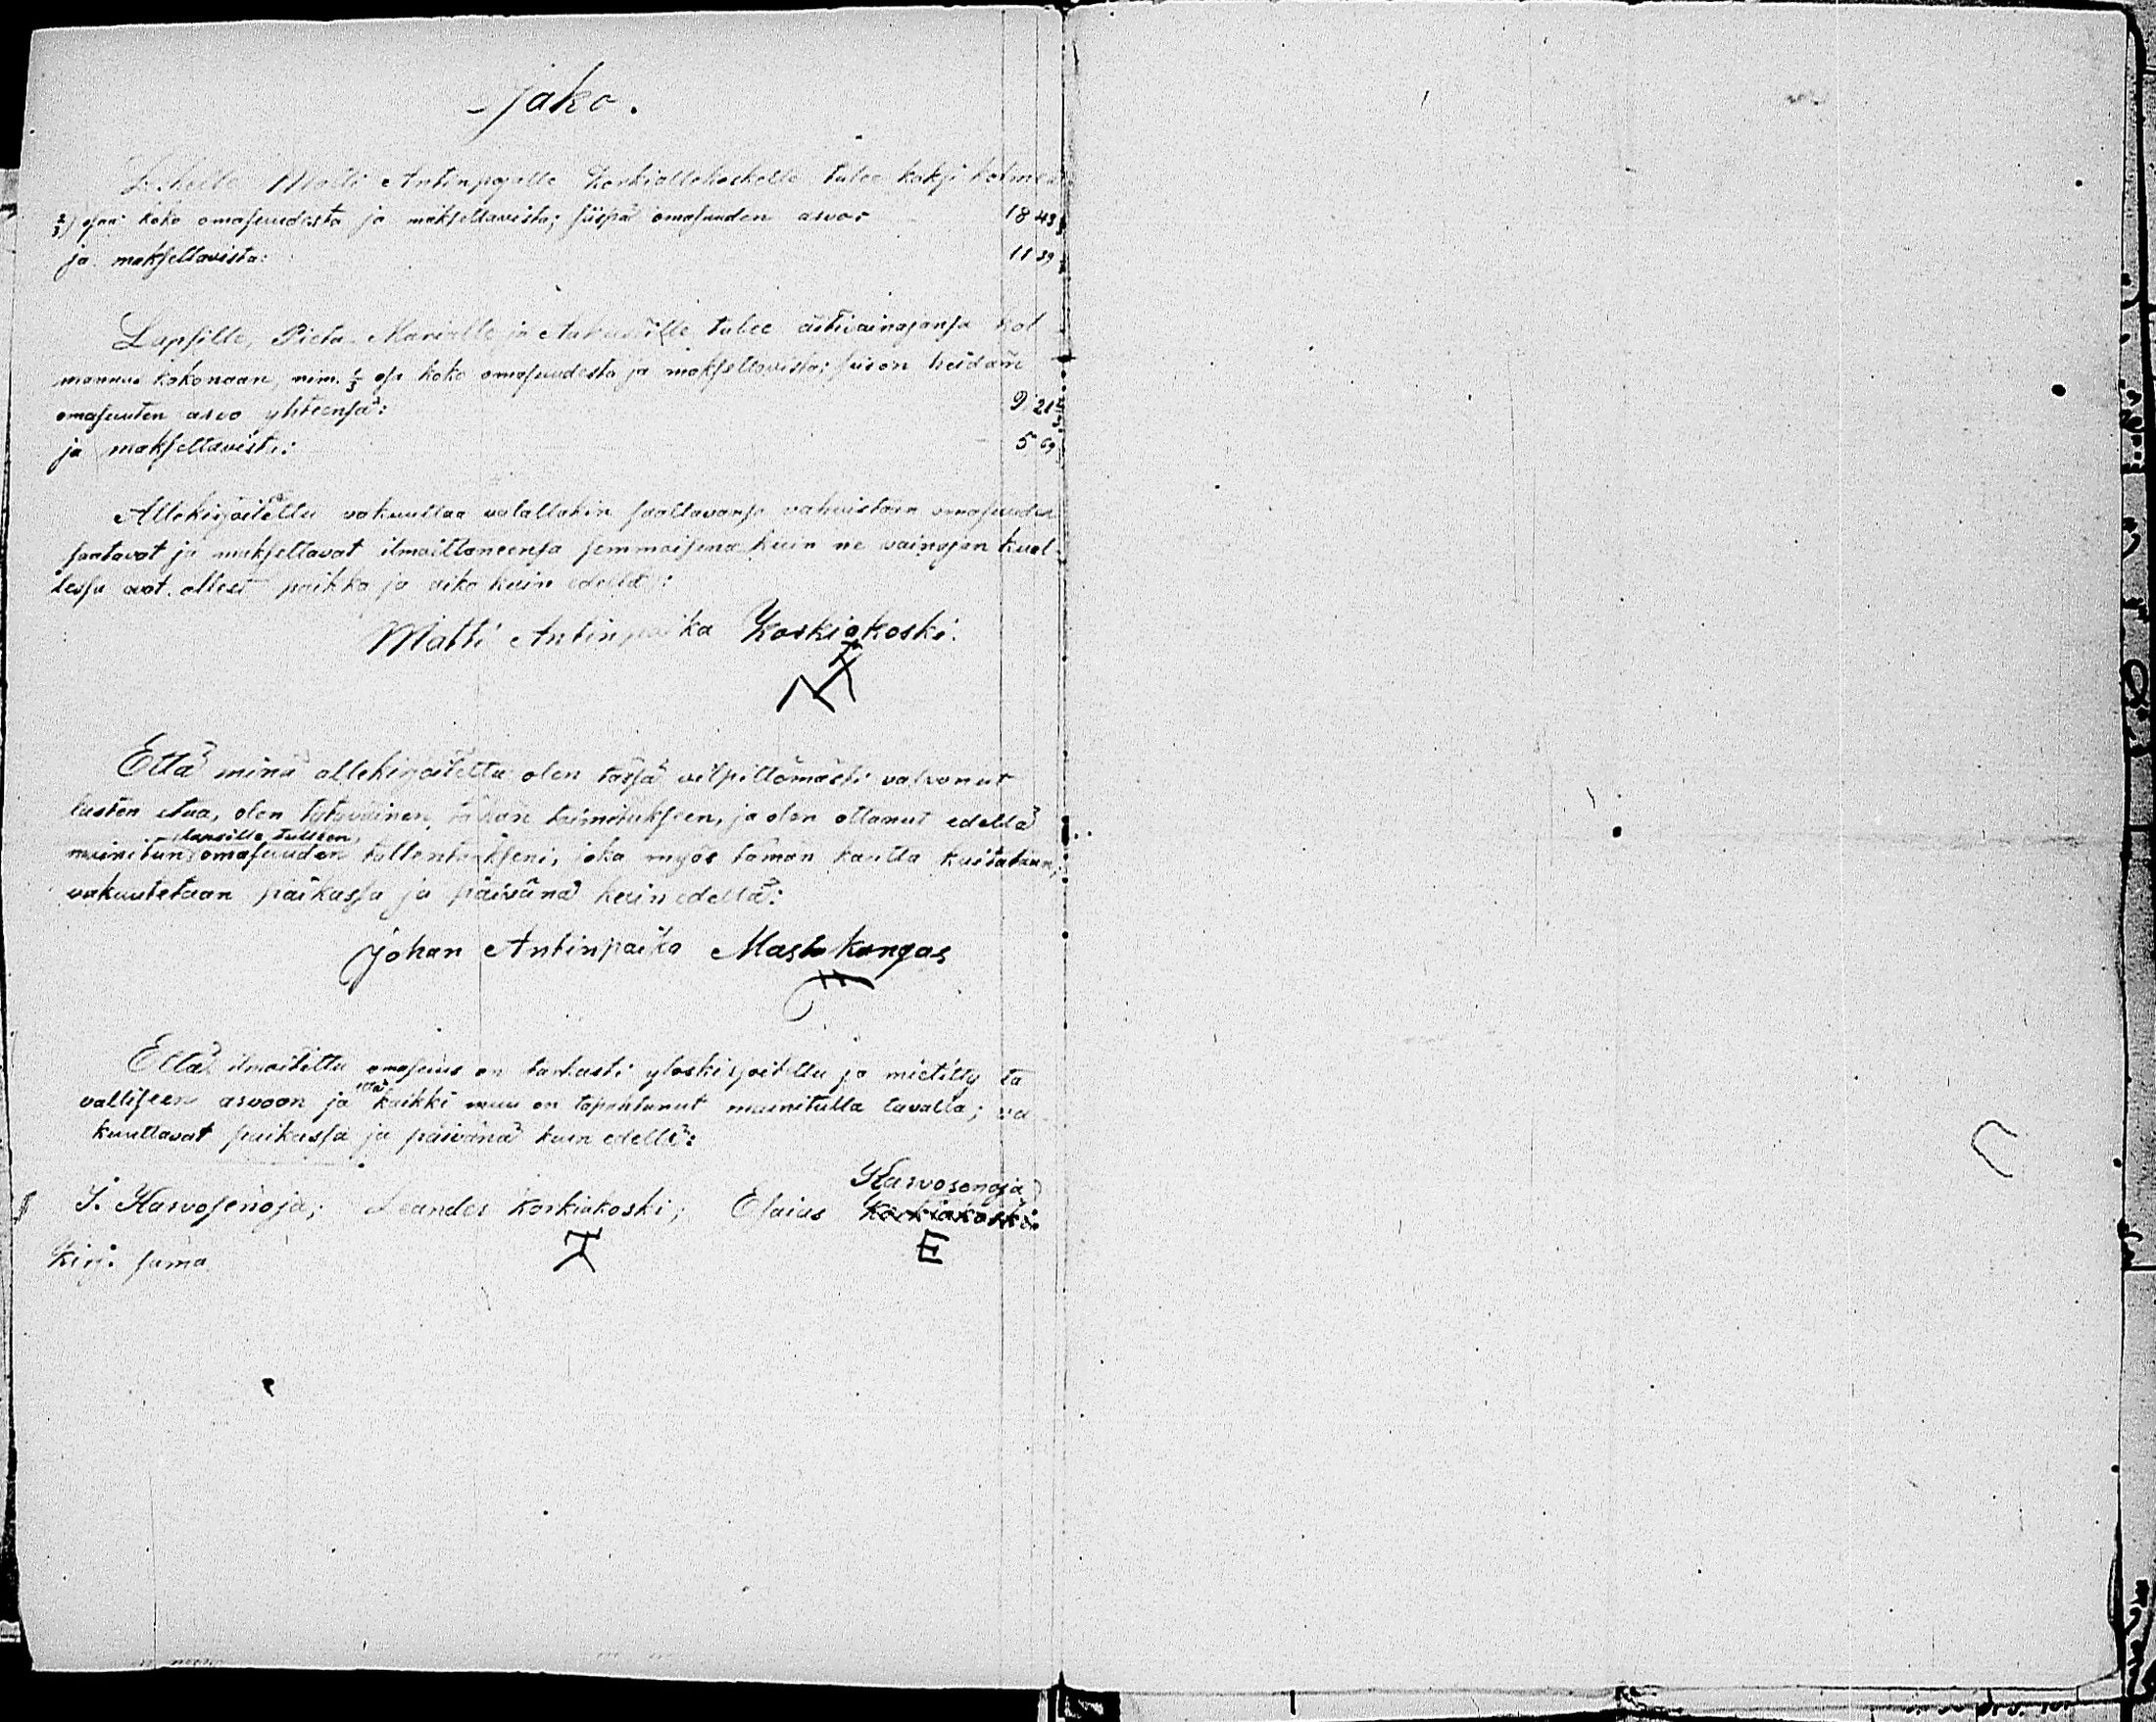 Jako.
Leskelle Matti Antinpojalle Korkiallekoskelle tulee kaksi kolmea
2/3) osaa koko omasuudesta ja maksettavista; siispä omasuuden arvo: 18 43
ja maksettavista: 11 39
Lapsille, Pieta Marialle ja tulee äitivainajansa kol
mannus kokonaan, nim. 1/3 osa koko omasuudesta ja maksettavista; heidän
omasuuten arvo yhteensä: 9 21
ja maksettavista: 5 69
Allekirjoitettu vakuuttaa valallakin saattavansa vahvistaa omasuuden
saatavat ja maksettavat ilmoittaneensa semmoisena kuin ne vainajan kuol
lessa ovat olleet paikka ja aika kuin edellä:
Matti Antinpoika Korkiakoski.
Että minä allekirjoitettu olen tässä vilpittömästi valvonut
lasten etua, olen tytyväinen tähän toimitukseen, ja olen ottanut edellä
lapsille tulleen
mainitun omasuuden taltentaakseni, joka myös tämän kautta kuitataan;
vakuutetaan paikassa ja päivänä kuin edellä:
Johan Antinpoika Mastokangas
Että ilmoitettu omasuus on tarkasti ylöskirjoitettu ja mietitty ta
valliseen arvoon ja että kaikki muu on tapahtunut mainitulla tavalla; va
kuuttavat paikassa ja päivänä kuin edellä:
Karvosenoja
J. Karvosenoja; Leander Korkiakoski; Esaias Korkiakoski:
Kirj: suma E